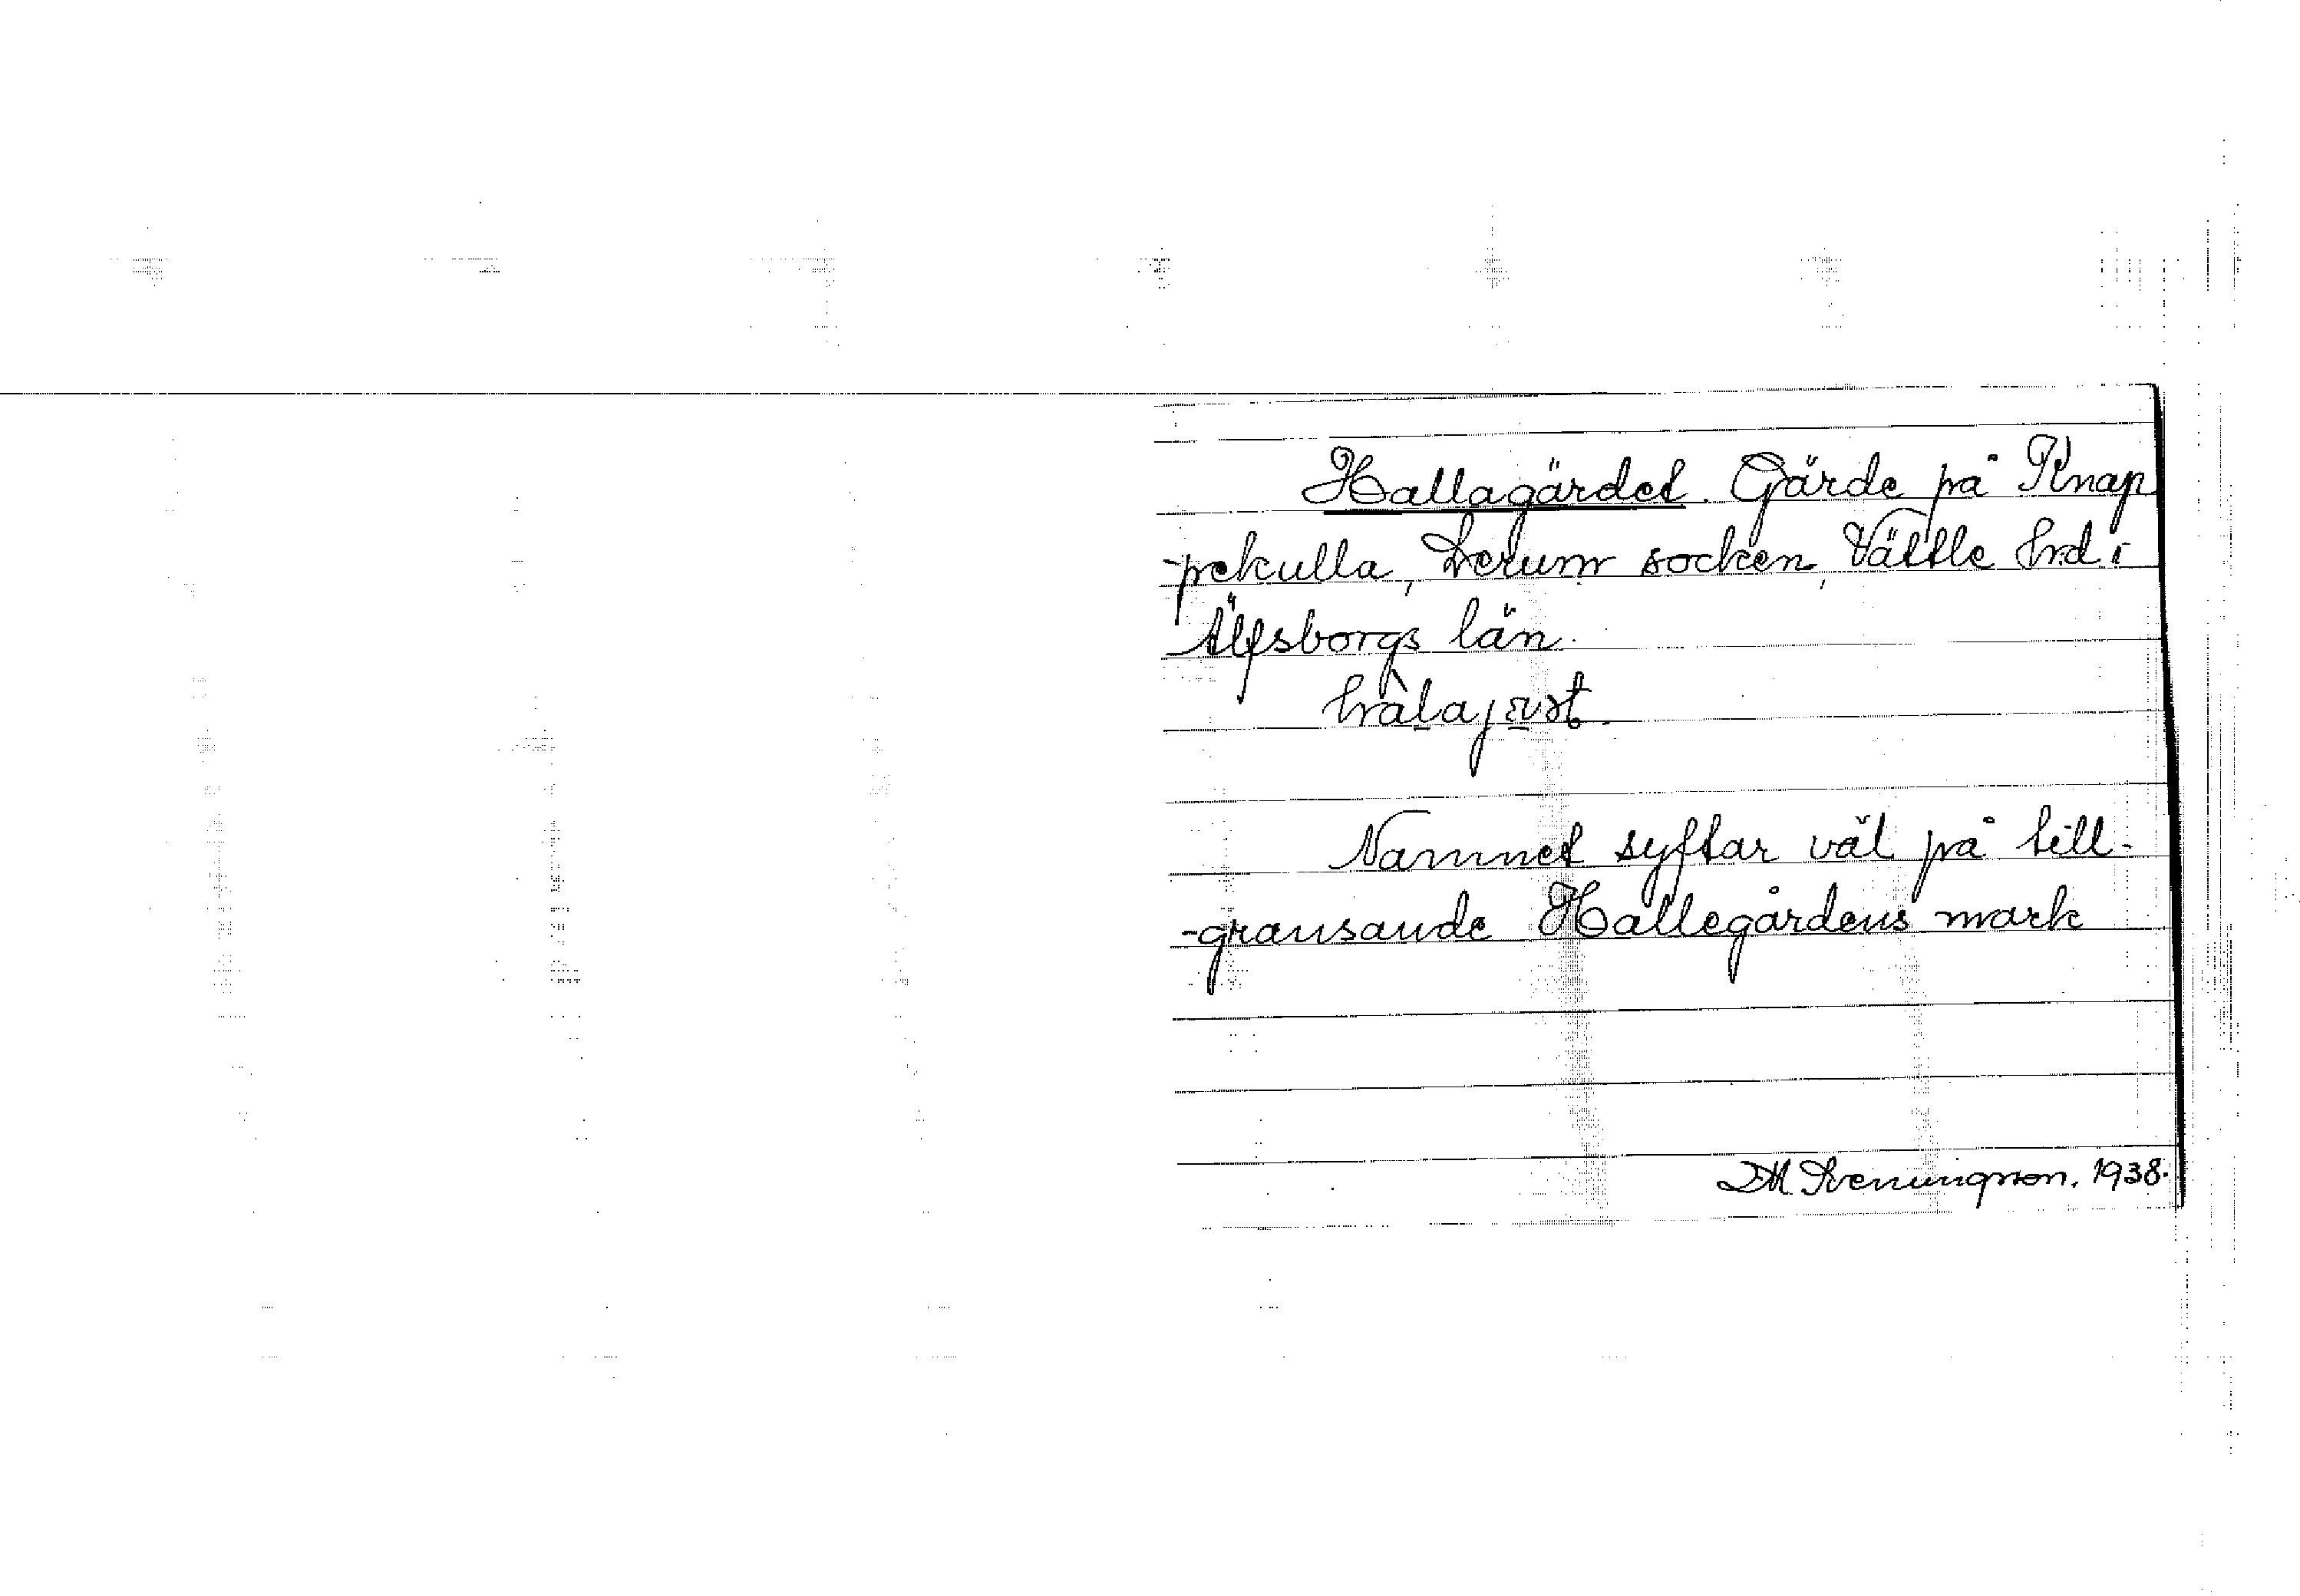 Hallagärdet. Gärde på Knap
-pekulla, Lerum socken, Vättle hrd i
Älfsborgs län.
Namnet syftar väl på till-
-gransande Hallegårdens mark
DM Svenungsson. 1938.